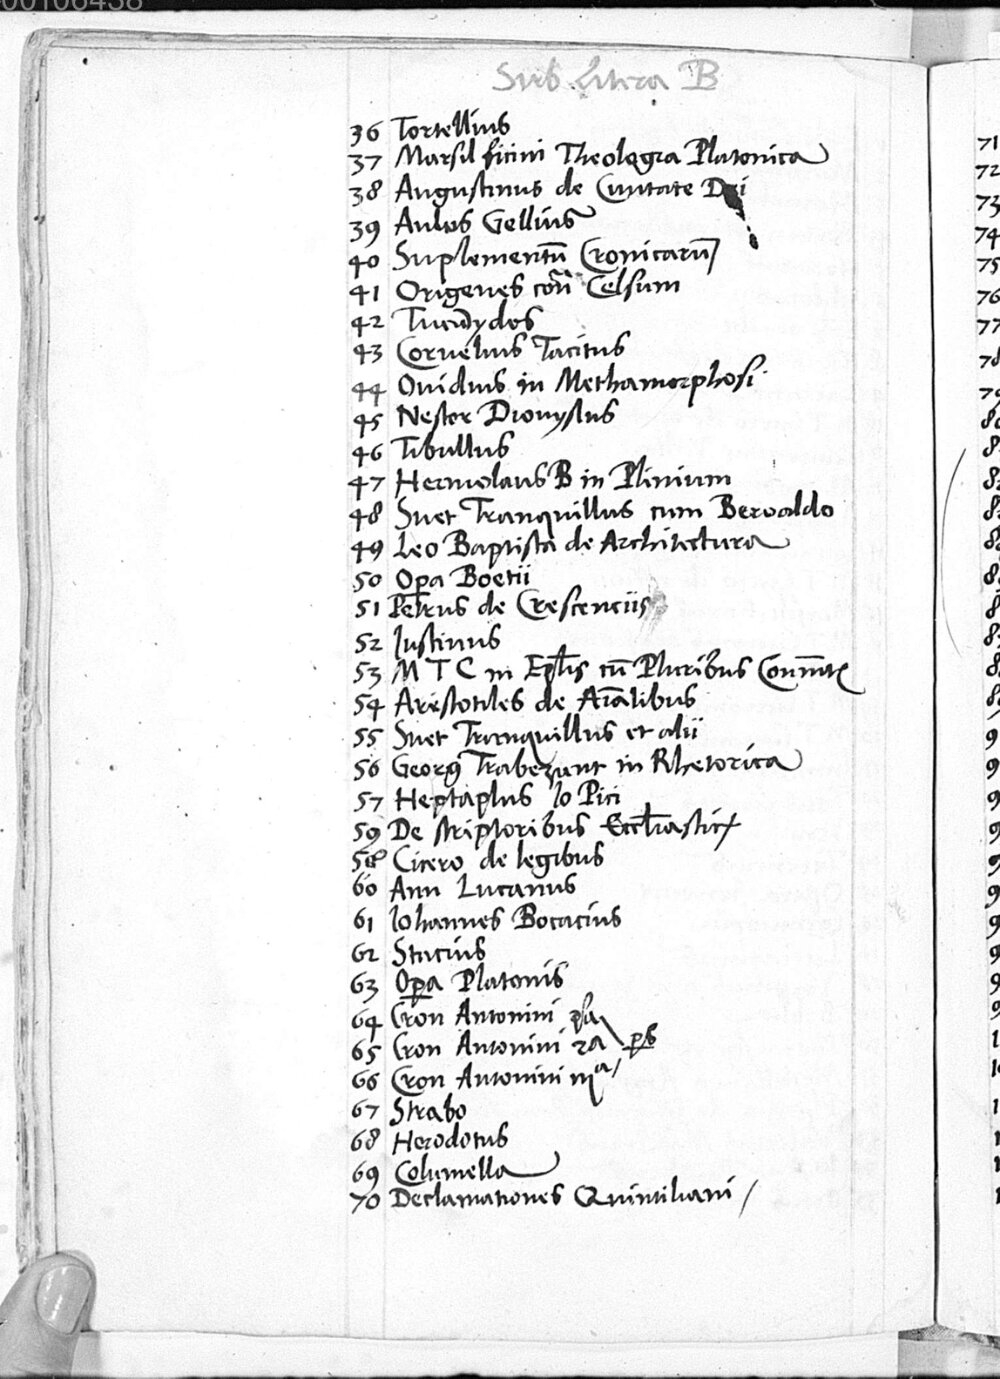 00106438
Sub Litera B
36 Tortellius
37 Marsil ficini Theologia Platonica
38 Augustinus de Civitate Dei
39 Aulus Gellius
40 Suplementũ Cronicarũ
41 Origenes con̄ Celsum
42 Tucidydes
43 Cornelius Tacitus
44 Ovidius in Methamorphosi
45 Nestor Dionysius
46 Tibullus
47 Hermolaus B in Plinium
48 Suet Tranquillus cum Beroaldo
49 Leo Baptista de Architectura
50 Opa Boetii
51 Petrus de Crescenciis
52 Iustinus
53 M T C in Eplis cũ Pluribus
54 Arestotiles de Aialibus
55 Suet Tranquillus et alii
56 Georg Trabezunt in Rhetorica
57 Heptaplus Io Pici
59 De scriptoribus
58 Cicero de legibus
60 Ann Lucanus
61 Iohannes Bocacius
62 Stacius
63 Opa Platonis
64 Cron Antonini pa
65 Cron Antonini 2a ps
66 Cron Antonini iija
67 Strabo
68 Herodotus
69 Columella
70 Declamationes Quintiliani /
71
72
73
74
75
76
77
78
79